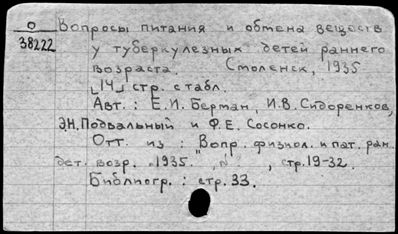 О Вопросы питания и обмена веществ
38222 у туберкулезных детей раннего
возраста. Смоленск, 1935
[14] стр. с табл.
Авт.: Е.И. Берман, И.В. Сидоренков,
Э.Н. Подвальный и Ф.Е. Сосонко.
Отт. из: "Вопр. физиол. и пат. ран.
дет. возр. 1935. , стр. 19-32.
Библиогр.: стр. 33.